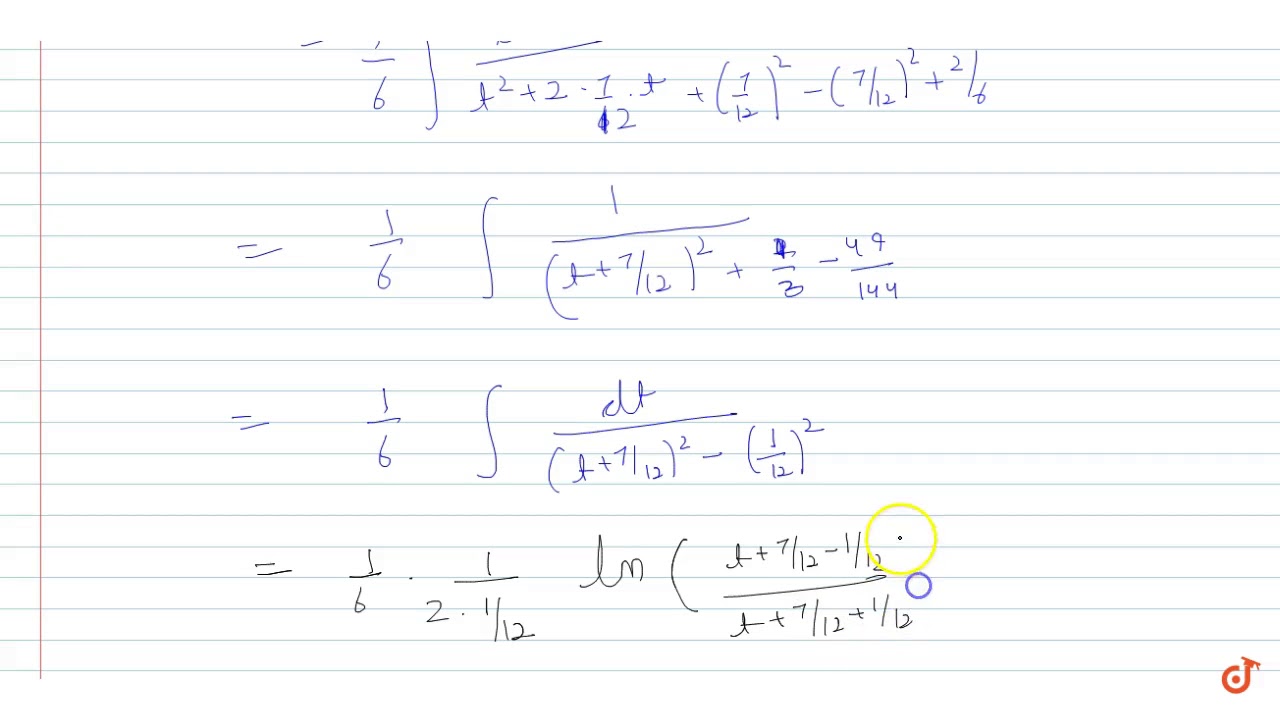 = 1/6 ∫ t² + 2 · 7/12 · t + (7/12)² − (7/12)² + 2/6
= 1/6 ∫ 1/((t + 7/12)² + 1/3 − 49/144)
= 1/6 ∫ dt/((t + 7/12)² − (1/12)²)
= 1/6 · 1/(2 · 1/12) ln ( (t + 7/12 − 1/12)/(t + 7/12 + 1/12)